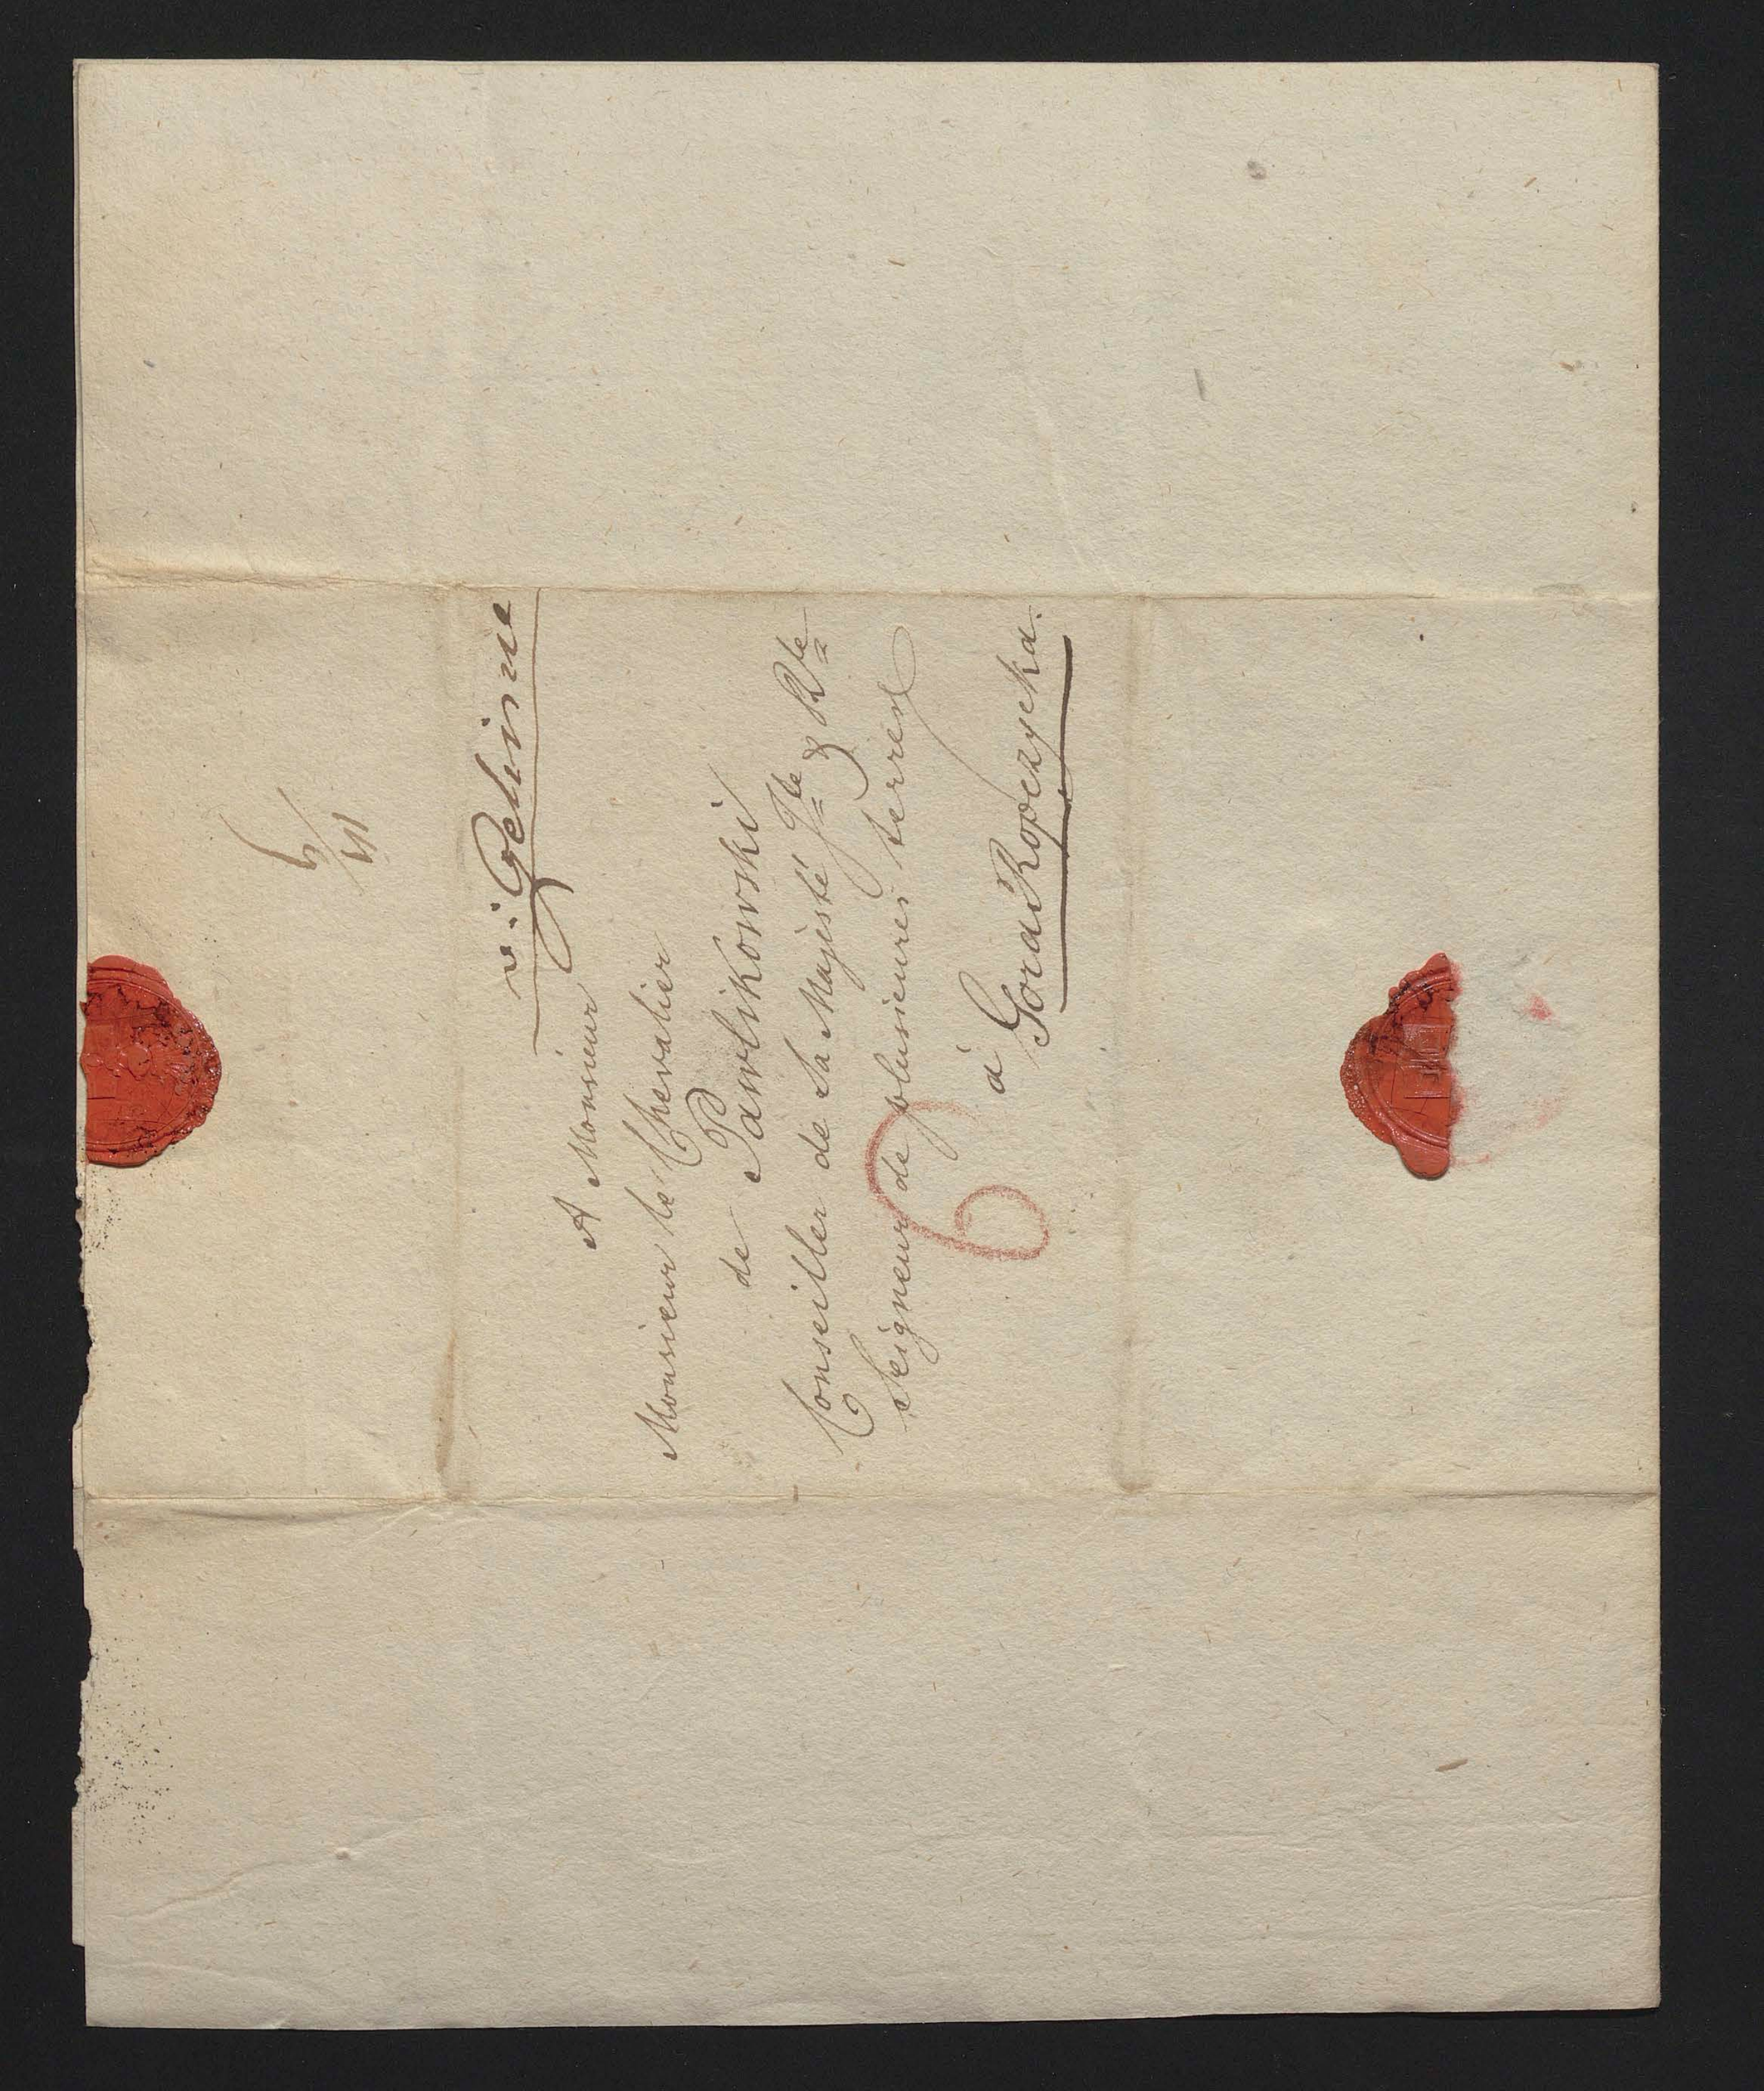 v: Gelinne
A Monsieur
Monsieur le Chevalier
de Pawlikowski
Conseiller de Sa Majesté Jle & Rle
Seigneur de plusieures terres
à Gora Ropczycka.
6